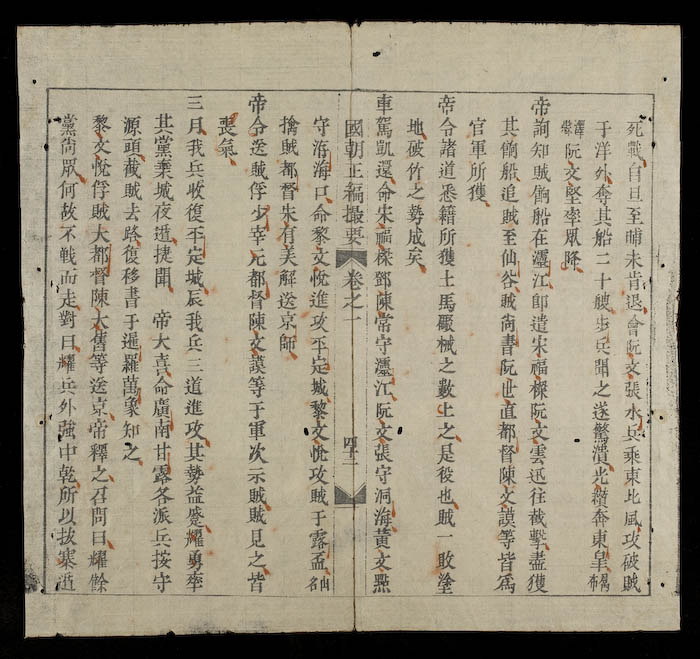 死戰自旦至晡未肯退會阮文張水兵乘東北風攻破賊
于洋外奪其船二十艘步兵聞之遂驚潰光纘奔東皇
阮文堅率眾降
帝詗知賊餉船在㶞江卽遣宋福樑阮文雲迅往截擊盡獲
其餉船追賊至仙谷賊尚書阮世直都督陳文謨等皆爲
官軍所獲
帝令諸道悉籍所獲士馬礟械之數上之是役也賊一敗塗
地破竹之勢成矣
車駕凱還命宋福樑鄧陳常守㶞江阮文張守洞海黃文點
國朝正編撮要 卷之一 四十二
守洊海口命黎文悅進攻平定城黎文悅攻賊于露盃山名
擒賊都督朱有美解送京師
帝令送賊俘少宰元都督陳文謨等于軍次示賊賊見之皆
喪氣
三月我兵收復平定城辰我兵三道進攻其勢益蹙耀勇率
其黨棄城夜遁捷聞 帝大喜命廣南甘露各派兵按守
源頭截賊去路復移書于暹羅萬象知之
黎文悅俘賊大都督陳大舊等送京帝釋之召問曰耀餘
黨尚眾何故不戰而走對曰耀兵外強中乾所以拔寨遁